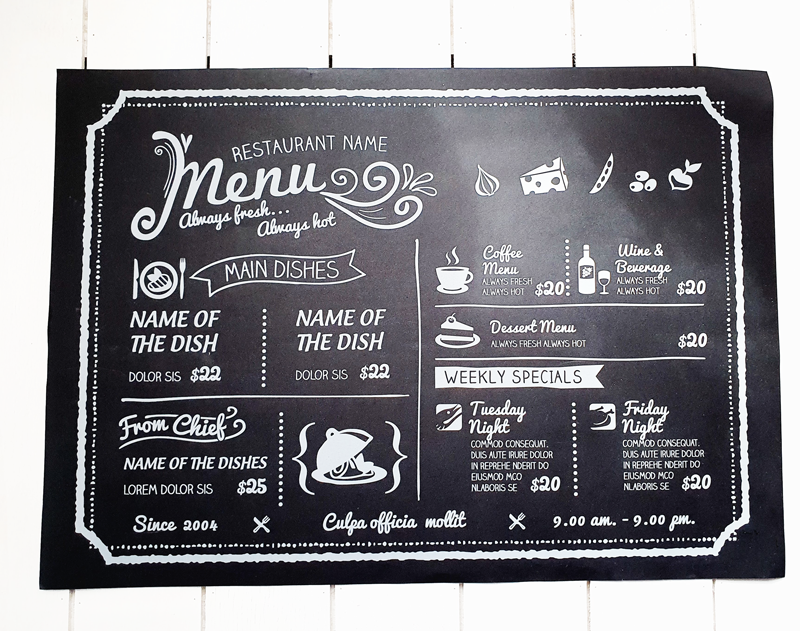 RESTAURANT NAME
Menu
Always fresh...
Always hot
MAIN DISHES
NAME OF
THE DISH
DOLOR SIS $22
NAME OF
THE DISH
DOLOR SIS $22
From Chief
NAME OF THE DISHES
LOREM DOLOR SIS $25
Coffee
Menu
ALWAYS FRESH
ALWAYS HOT $20
Wine &
Beverage
ALWAYS FRESH
ALWAYS HOT $20
Dessert Menu
ALWAYS FRESH ALWAYS HOT $20
WEEKLY SPECIALS
Tuesday
Night
COMMOD CONSEQUAT.
DUIS AUTE IRURE DOLOR
IN REPREHE NDERIT DO
EIUSMOD MCO
NLABORIS SE $20
Friday
Night
COMMOD CONSEQUAT.
DUIS AUTE IRURE DOLOR
IN REPREHE NDERIT DO
EIUSMOD MCO
NLABORIS SE $20
Since 2004
Culpa officia mollit
9.00 am. - 9.00 pm.